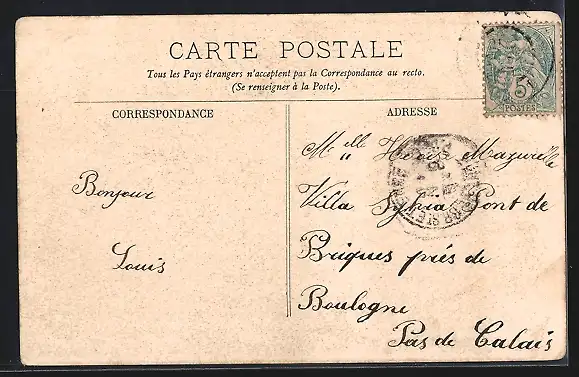 CARTE POSTALE
Tous les Pays étrangers n'acceptent pas la Correspondance au recto.
(Se renseigner à la Poste).
CORRESPONDANCE
ADRESSE
Bonjour
Louis
Melle
Villa Pont de
Briques près de
Boulogne
Pas de Calais
5
POSTES